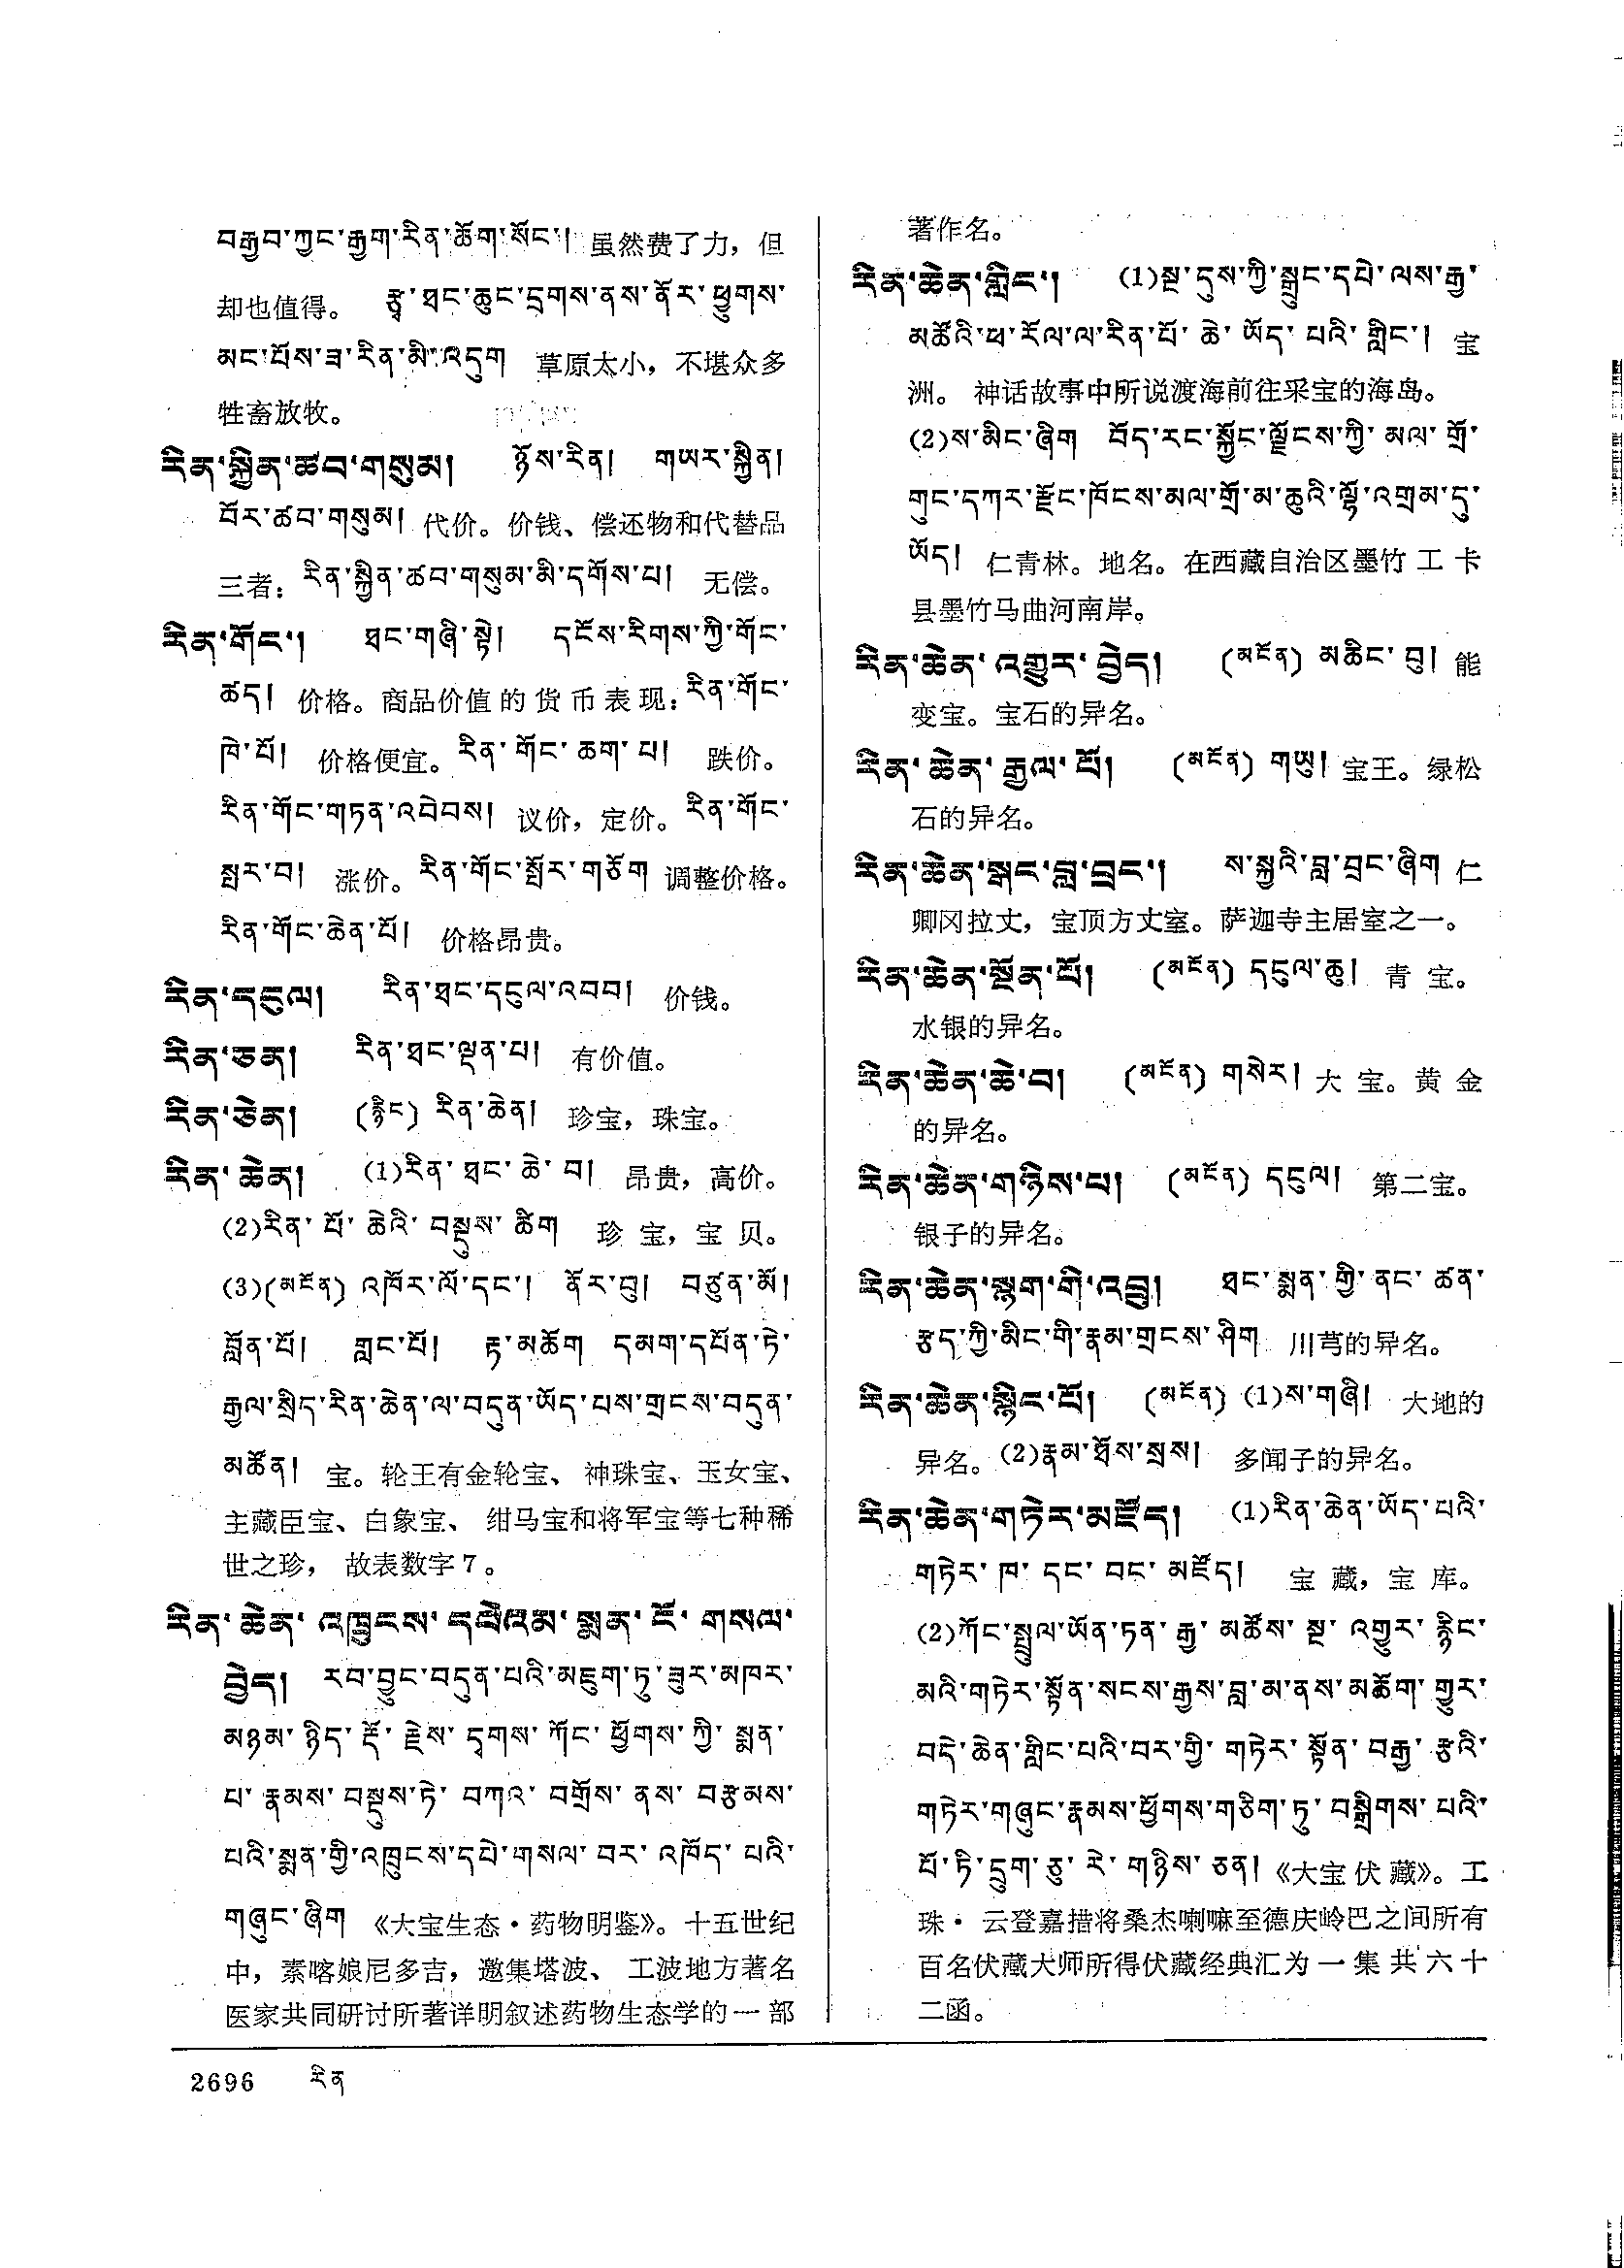 བརྒྱབ་ཀྱང་རྒྱག་རིན་ཆོག་སོང་། 虽然费了力，但
却也值得。 རྩྭ་ཐང་ཆུང་དྲགས་ནས་ནོར་ཕྱུགས་
མང་པོས་ཟ་རིན་མི་འདུག 草原太小，不堪众多
牲畜放牧。
རིན་སྐྱིན་ཚབ་གསུམ། ཉོས་རིན། གཡར་སྐྱིན།
བོར་ཚབ་གསུམ། 代价。价钱、偿还物和代替品
三者：རིན་སྐྱིན་ཚབ་གསུམ་མི་དགོས་པ། 无偿。
རིན་གོང་། ཐང་གཞི་སྟེ། དངོས་རིགས་ཀྱི་གོང་
ཚད། 价格。商品价值的货币表现：རིན་གོང་
ཁེ་པོ། 价格便宜。རིན་གོང་ཆག་པ། 跌价。
རིན་གོང་གཏན་འབེབས། 议价，定价。རིན་གོང་
སྤར་བ། 涨价。རིན་གོང་སྤོར་གཅོག 调整价格。
རིན་གོང་ཆེན་པོ། 价格昂贵。
རིན་དངུལ། རིན་ཐང་དངུལ་འབབ། 价钱。
རིན་ཅན། རིན་ཐང་ལྡན་པ། 有价值。
རིན་ཅེན། (རྙིང) རིན་ཆེན། 珍宝，珠宝。
རིན་ཆེན། (1)རིན་ཐང་ཆེ་བ། 昂贵，高价。
(2)རིན་པོ་ཆེའི་བསྡུས་ཚིག 珍宝，宝贝。
(3)(མངོན) འཁོར་ལོ་དང་། ནོར་བུ། བཙུན་མོ།
བློན་པོ། གླང་པོ། རྟ་མཆོག དམག་དཔོན་ཏེ་
རྒྱལ་སྲིད་རིན་ཆེན་ལ་བདུན་ཡོད་པས་གྲངས་བདུན་
མཚོན། 宝。轮王有金轮宝、神珠宝、玉女宝、
主藏臣宝、白象宝、绀马宝和将军宝等七种稀
世之珍，故表数字7。
རིན་ཆེན་འཁྲུངས་དཔེའམ་སྨན་ངོ་གསལ་
བྱེད། རབ་བྱུང་བདུན་པའི་མཇུག་ཏུ་ཟུར་མཁར་
མཉམ་ཉིད་རྡོ་རྗེས་དྭགས་ཀོང་ཕྱོགས་ཀྱི་སྨན་
པ་རྣམས་བསྡུས་ཏེ་བཀའ་བགྲོས་ནས་བརྩམས་
པའི་སྨན་གྱི་འཁྲུངས་དཔེ་གསལ་བར་འཁོད་པའི་
གཞུང་ཞིག 《大宝生态·药物明鉴》。十五世纪
中，素喀娘尼多吉，邀集塔波、工波地方著名
医家共同研讨所著详明叙述药物生态学的一部
著作名。
རིན་ཆེན་གླིང་། (1)སྔ་དུས་ཀྱི་སྒྲུང་དཔེ་ལས་རྒྱ་
མཚོའི་ཕ་རོལ་ལ་རིན་པོ་ཆེ་ཡོད་པའི་གླིང་། 宝
洲。神话故事中所说渡海前往采宝的海岛。
(2)ས་མིང་ཞིག བོད་རང་སྐྱོང་ལྗོངས་ཀྱི་མལ་གྲོ་
གུང་དཀར་རྫོང་ཁོངས་མལ་གྲོ་མ་ཆུའི་ལྷོ་འགྲམ་དུ་
ཡོད། 仁青林。地名。在西藏自治区墨竹工卡
县墨竹马曲河南岸。
རིན་ཆེན་འགྱུར་བྱེད། (མངོན) མཆིང་བུ། 能
变宝。宝石的异名。
རིན་ཆེན་རྒྱལ་པོ། (མངོན) གཡུ། 宝王。绿松
石的异名。
རིན་ཆེན་སྒང་བླ་བྲང་། ས་སྐྱའི་བླ་བྲང་ཞིག 仁
卿冈拉丈，宝顶方丈室。萨迦寺主居室之一。
རིན་ཆེན་སྔོན་པོ། (མངོན) དངུལ་ཆུ། 青宝。
水银的异名。
རིན་ཆེན་ཆེ་བ། (མངོན) གསེར། 大宝。黄金
的异名。
རིན་ཆེན་གཉིས་པ། (མངོན) དངུལ། 第二宝。
银子的异名。
རིན་ཆེན་ལྷག་གི་འབྲུ། ཐང་སྨན་གྱི་ནང་ཚན་
རྩད་ཀྱི་མིང་གི་རྣམ་གྲངས་ཤིག 川芎的异名。
རིན་ཆེན་སྙིང་པོ། (མངོན) (1)ས་གཞི། 大地的
异名。(2)རྣམ་ཐོས་སྲས། 多闻子的异名。
རིན་ཆེན་གཏེར་མཛོད། (1)རིན་ཆེན་ཡོད་པའི་
གཏེར་ཁ་དང་བང་མཛོད། 宝藏，宝库。
(2)ཀོང་སྤྲུལ་ཡོན་ཏན་རྒྱ་མཚོས་སྔ་འགྱུར་རྙིང་
མའི་གཏེར་སྟོན་སངས་རྒྱས་བླ་མ་ནས་མཆོག་གྱུར་
བདེ་ཆེན་གླིང་པའི་བར་གྱི་གཏེར་སྟོན་བརྒྱ་རྩའི་
གཏེར་གཞུང་རྣམས་ཕྱོགས་གཅིག་ཏུ་བསྒྲིགས་པའི་
པོ་ཏི་དྲུག་ཅུ་རེ་གཉིས་ཅན། 《大宝伏藏》。工
珠·云登嘉措将桑杰喇嘛至德庆岭巴之间所有
百名伏藏大师所得伏藏经典汇为一集共六十
二函。
2696 རིན